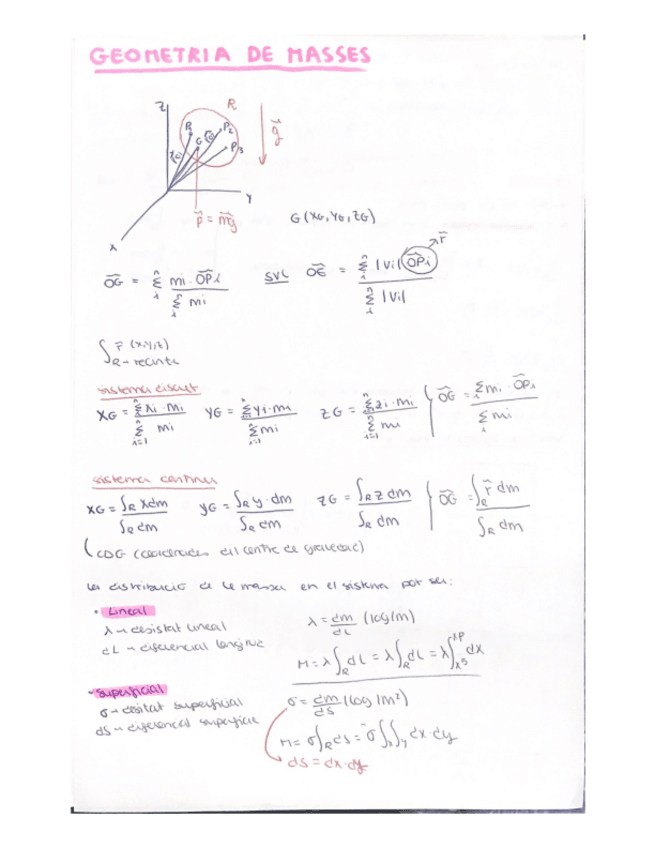 GEOMETRIA DE MASSES
Z R
P₁ G P₂ P₃ g⃗
Y
p⃗ = mg⃗
X
G (XG, YG, ZG)
OG⃗ = Σⁿᵢ mi · OPi⃗ / Σⁿᵢ mi SVL OE⃗ = Σⁿᵢ |Vi| OPi⃗ / Σⁿᵢ |Vi| → r⃗
r⃗ (x,y,z)
R → recinte
sistema discret
XG = Σⁿᵢ₌₁ xi · mi / Σⁿᵢ₌₁ mi YG = Σⁿ yi · mi / Σⁿᵢ₌₁ mi ZG = Σⁿ zi · mi / Σⁿᵢ₌₁ mi OG⃗ = Σ mi · OPi⃗ / Σᵢ mi
sistema continu
XG = ∫R x dm / ∫R dm YG = ∫R y · dm / ∫R dm ZG = ∫R z dm / ∫R dm OG⃗ = ∫R r⃗ dm / ∫R dm
CDG (coordenades del centre de gravedad)
La distribució de la massa en el sistema pot ser:
• Lineal
λ → desistat lineal
dL → diferencial longitud
λ = dm / dL (kg/m)
M = λ ∫R dL = λ ∫R dL = λ ∫ dx
• Superficial
σ → desitat superficial
dS → diferencial superficie
σ = dm / dS (kg/m²)
M = σ ∫R dS = σ ∫x ∫y dx · dy
dS = dx · dy